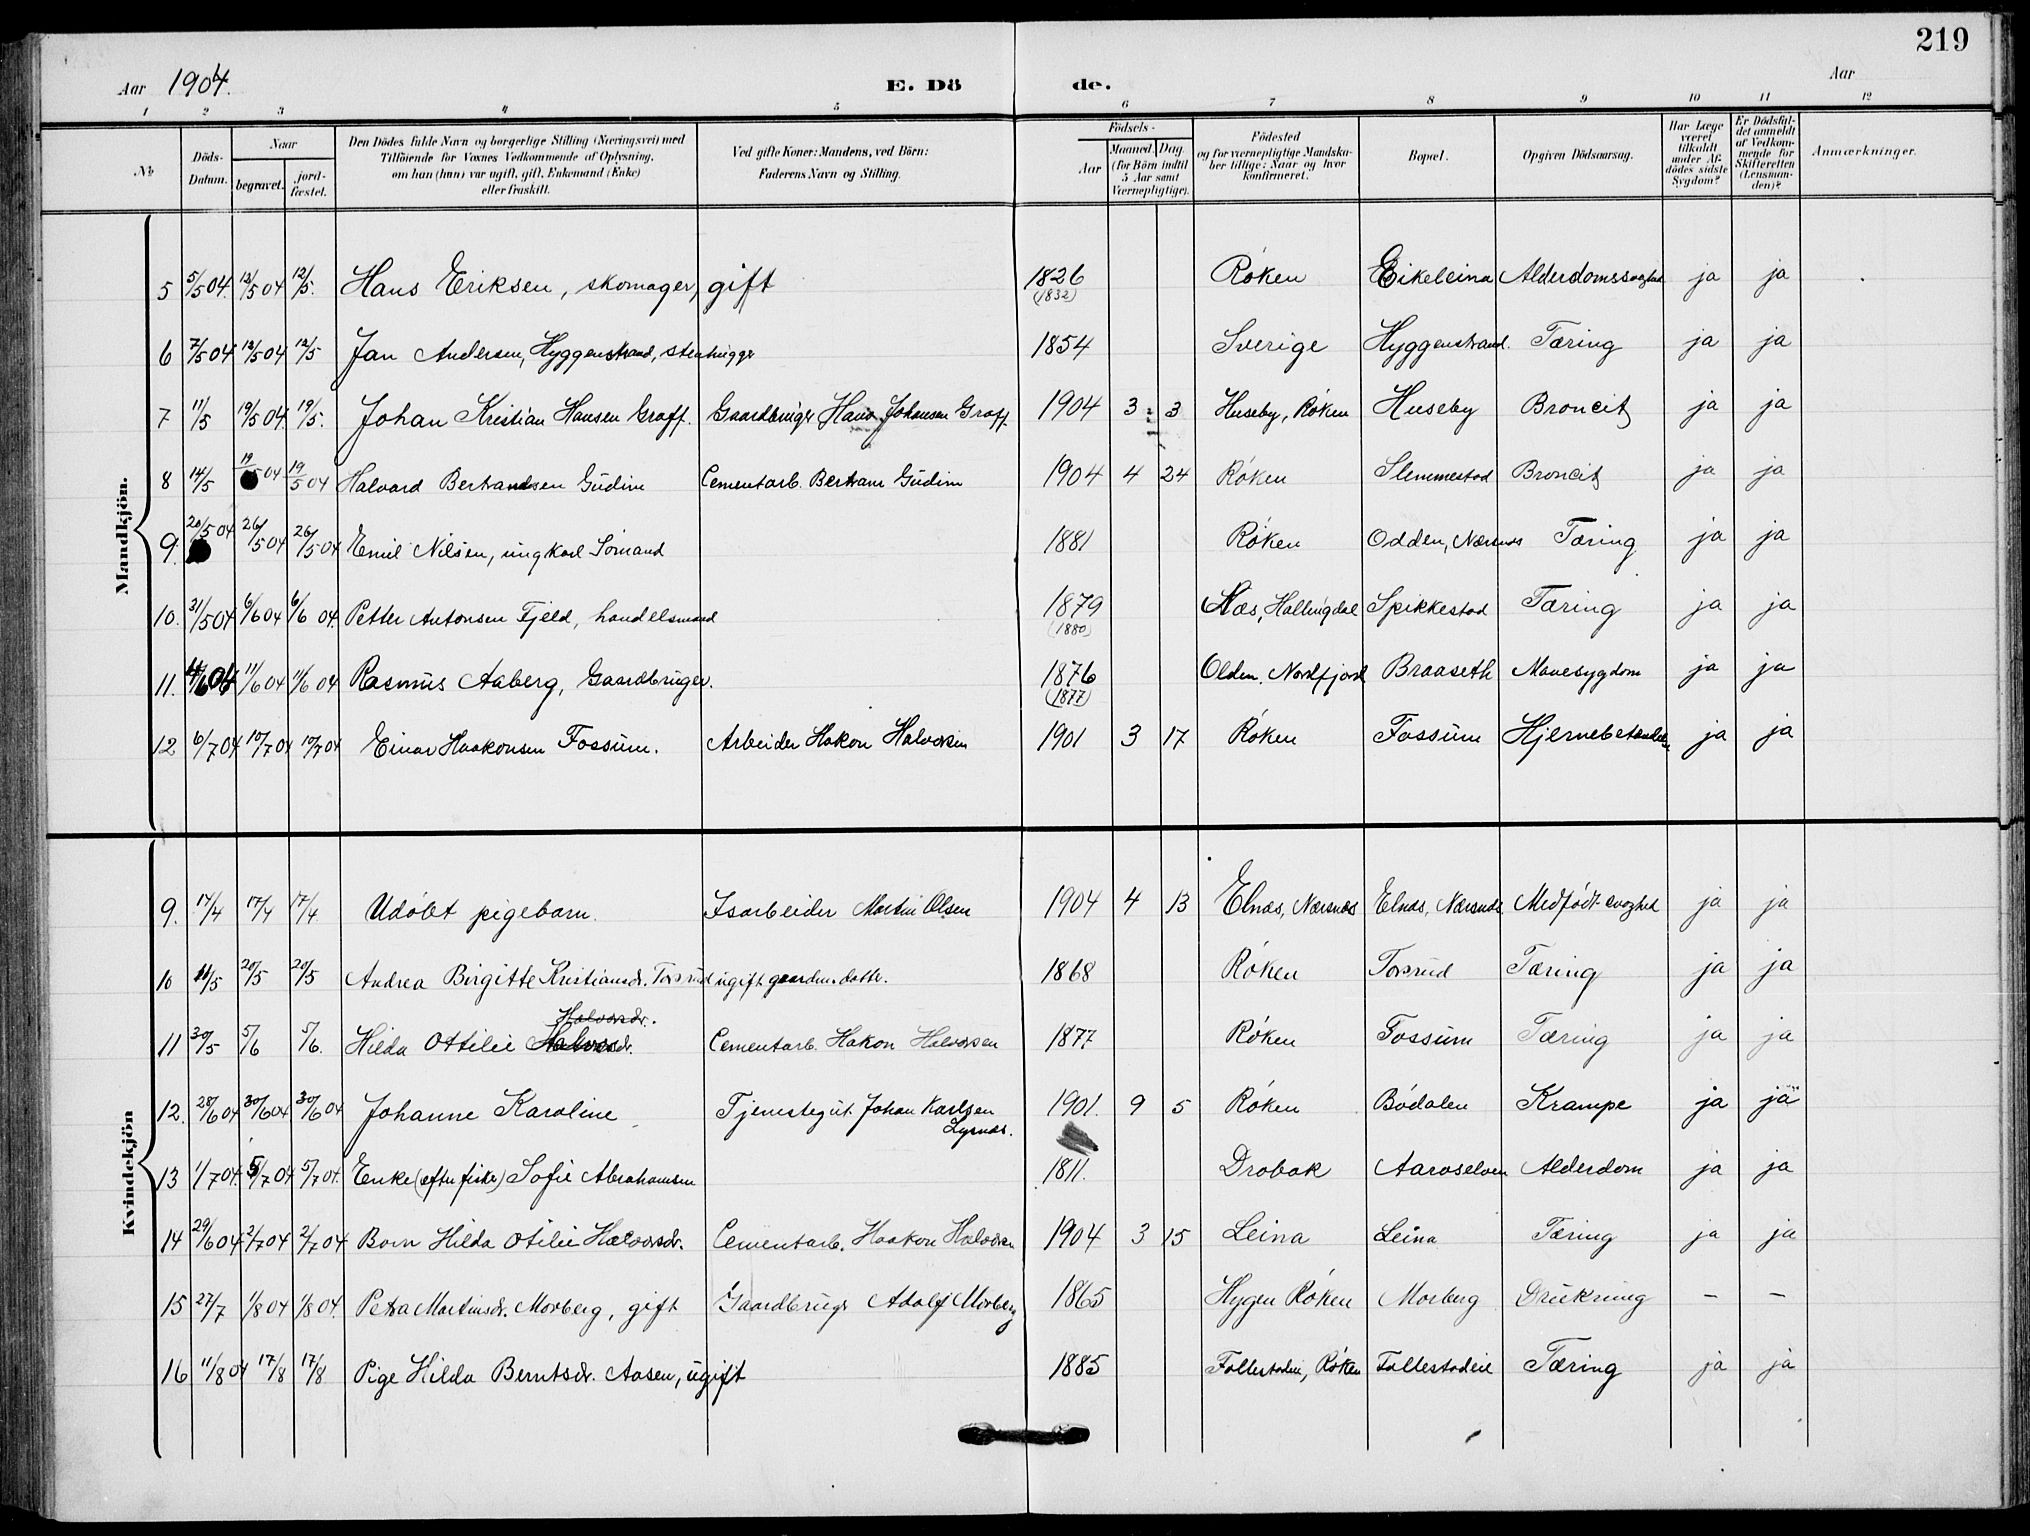 219
Aar 1904. E. Dö de. Aar
1 2 3 4 5 6 7 8 9 10 11 12
No
Döds-Datum.
Naar
begravet.
jord-fæstet.
Den Dödes fulde Navn og borgerlige Stilling (Næringsvei) med
Tilföiende for Voxnes Vedkommende af Oplysning,
om han (hun) var ugift, gift, Enkemand (Enke)
eller fraskilt.
Ved gifte Koner: Mandens, ved Börn:
Faderens Navn og Stilling.
Födsels-
Aar
Maaned. Dag.
(for Börn indtil
5 Aar samt
Værnepligtige).
Födested
og for værnepligtige Mandska-
ber tillige: Naar og hvor
konfirmeret.
Bopæl.
Opgiven Dödsaarsag.
Har Læge
været
tilkaldt
under Af-
dödes sidste
Sygdom?
Er Dödsfal-
det anmeldt
af Vedkom-
mende for
Skifteretten
(Lensman-
den)?
Anmærkninger.
Mandkjön.
5 5/5 04. 12/5 04 12/5. Hans Eriksen, skomager, gift 1826 (1832) Røken Eikeleina Alderdomssvaghed ja ja
6 7/5 04 12/5 04 12/5 Jan Andersen, Hyggenstrand, stenhugger 1854 Sverige Hyggenstrand. Tæring ja ja
7 11/5 19/5 04. 19/5. Johan Kristian Hansen Graff. Gaardbruger Hans Johansen Graff. 1904 3 3 Huseby, Røken Huseby Broncit ja ja
8 14/5 19/5 04 19/5 04 Halvard Bertramsen Gudim Cementarb. Bertram Gudim 1904 4 24 Røken Slemmestad Broncit ja ja
9. 20/5 04 26/5 04 26/5 04 Emil Nilsen, ungkarl Sømand 1881 Røken Odden, Nærsnes Tæring ja ja
10. 31/5 04 6/6 04 6/6 04. Petter Antonsen Fjeld, handelsmand 1879 (1880) Næs, Hallingdal Spikkestad Tæring ja ja
11. 4/6 04 11/6 04 11/6 04 Rasmus Aaberg, Gaardbruger. 1876 (1877) Olden. Nordfjord Braaseth Mavesygdom ja ja
12 6/7 04 10/7 04 10/7 04 Einar Haakonsen Fossum. Arbeider Hakon Halvorsen 1901 3 17 Røken Fossum Hjernebetændelse ja ja
Kvindekjön
9. 14/4 17/4 17/4 Udøbt pigebarn. Isarbeider Martin Olsen 1904 4 13 Elnæs, Nærsnæs Elnæs, Nærsnæs. Medfødt svaghed ja ja
10 14/5 20/5 20/5 Andrea Birgitte Kristiansdr. Torsrud ugift gaardm. datter. 1868 Røken Torsrud Tæring ja ja
Halvorsdr.
11 30/5 5/6 5/6. Hilda Ottilie Halvorsdr. Cementarb. Hakon Halvorsen 1877 Røken Fossum Tæring ja ja
12. 28/6 04 30/6 04 30/6 04 Johanne Karoline Tjenestegut Johan Karlsen Lysnæs. 1901. 9 5 Røken Bødalen Krampe ja ja
13 1/7 04. 5/7 04 5/7 04. Enke (efter fisker) Sofie Abrahamsen 1811. Drøbak Aaroselven Alderdom ja ja
14 29/6 04 2/7 04 2/7 04 Barn Hilda Otilie Halvorsdr. Cementarb. Haakon Halvorsen 1904 3 15 Leina Leina Tæring ja ja
15 27/7 1/8 04 1/8 04. Petra Martinsdr. Morberg, gift Gaardbruger Adolf Morberg 1865 Hygen Røken Morberg Drukning — —
16 11/8 04 17/8 17/8 Pige Hilda Berntsdr. Aasen, ugift 1885 Follestadeie, Røken Follestadeie Tæring ja ja